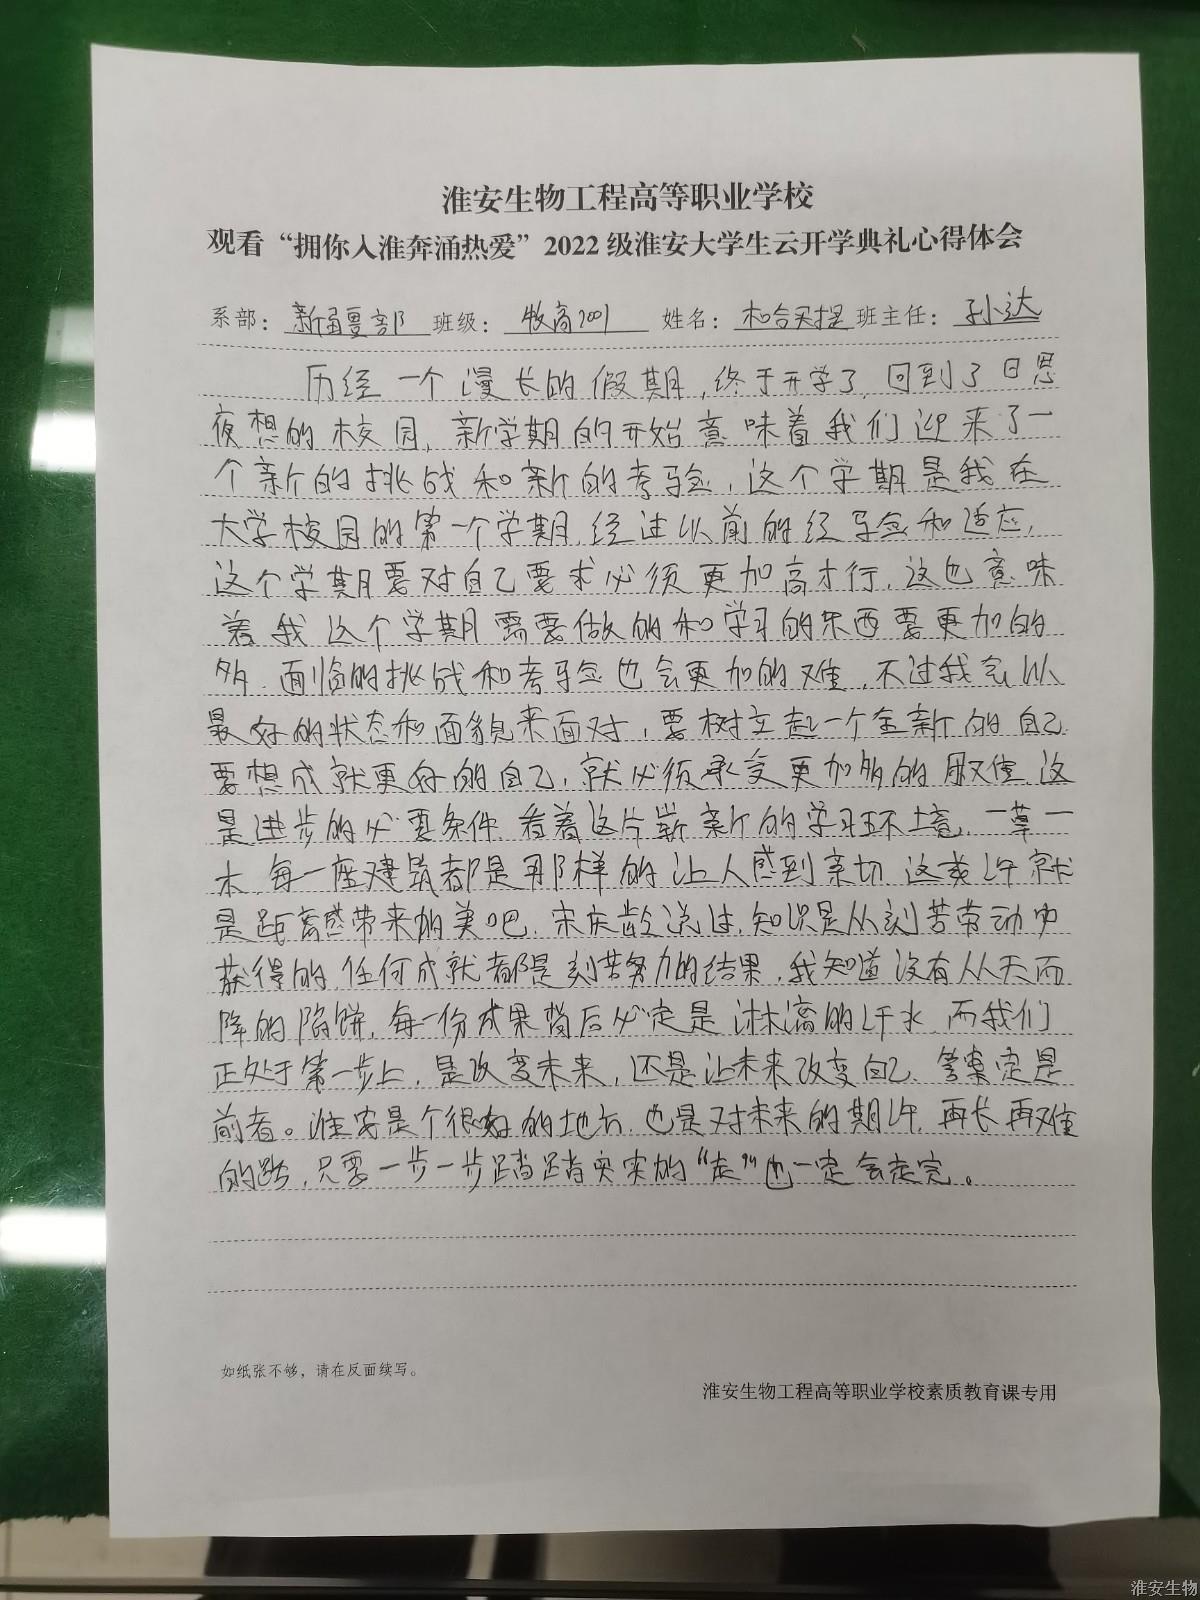 淮安生物工程高等职业学校
观看“拥你入淮奔涌热爱”2022级淮安大学生云开学典礼心得体会
系部：新疆部 班级：牧高2001 姓名：和合买提 班主任：孙达
历经一个漫长的假期，终于开学了，回到了日思
夜想的校园，新学期的开始意味着我们迎来了一
个新的挑战和新的考验，这个学期是我在
大学校园的第一个学期，经过以前的经验和适应，
这个学期要对自己要求必须更加高才行，这也意味
着我这个学期需要做的和学习的东西要更加的
多，面临的挑战和考验也会更加的难，不过我会以
最好的状态和面貌来面对，要树立起一个全新的自己
要想成就更好的自己，就必须承受更加多的，这
是进步的必要条件，看着这片崭新的学习环境，一草一
木，每一座建筑都是那样的让人感到亲切，这或许就
是距离感带来的美吧，宋庆龄说过，知识是从刻苦劳动中
获得的，任何成就都是刻苦努力的结果，我知道没有从天而
降的陷饼，每一份成果背后必定是淋漓的汗水，而我们
正处于第一步上，是改变未来，还是让未来改变自己，答案定是
前者。淮安是个很好的地方，也是对未来的期许，再长再难
的路，只要一步一步踏踏实实的“走”也一定会走完。
如纸张不够，请在反面续写。
淮安生物工程高等职业学校素质教育课专用
淮安生物